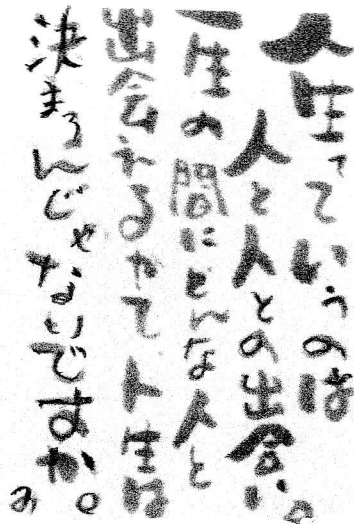 人生っていうのは
人と人との出会い。
一生の間にどんな人と
出会えるかで人生は
決まるんじゃないですか。